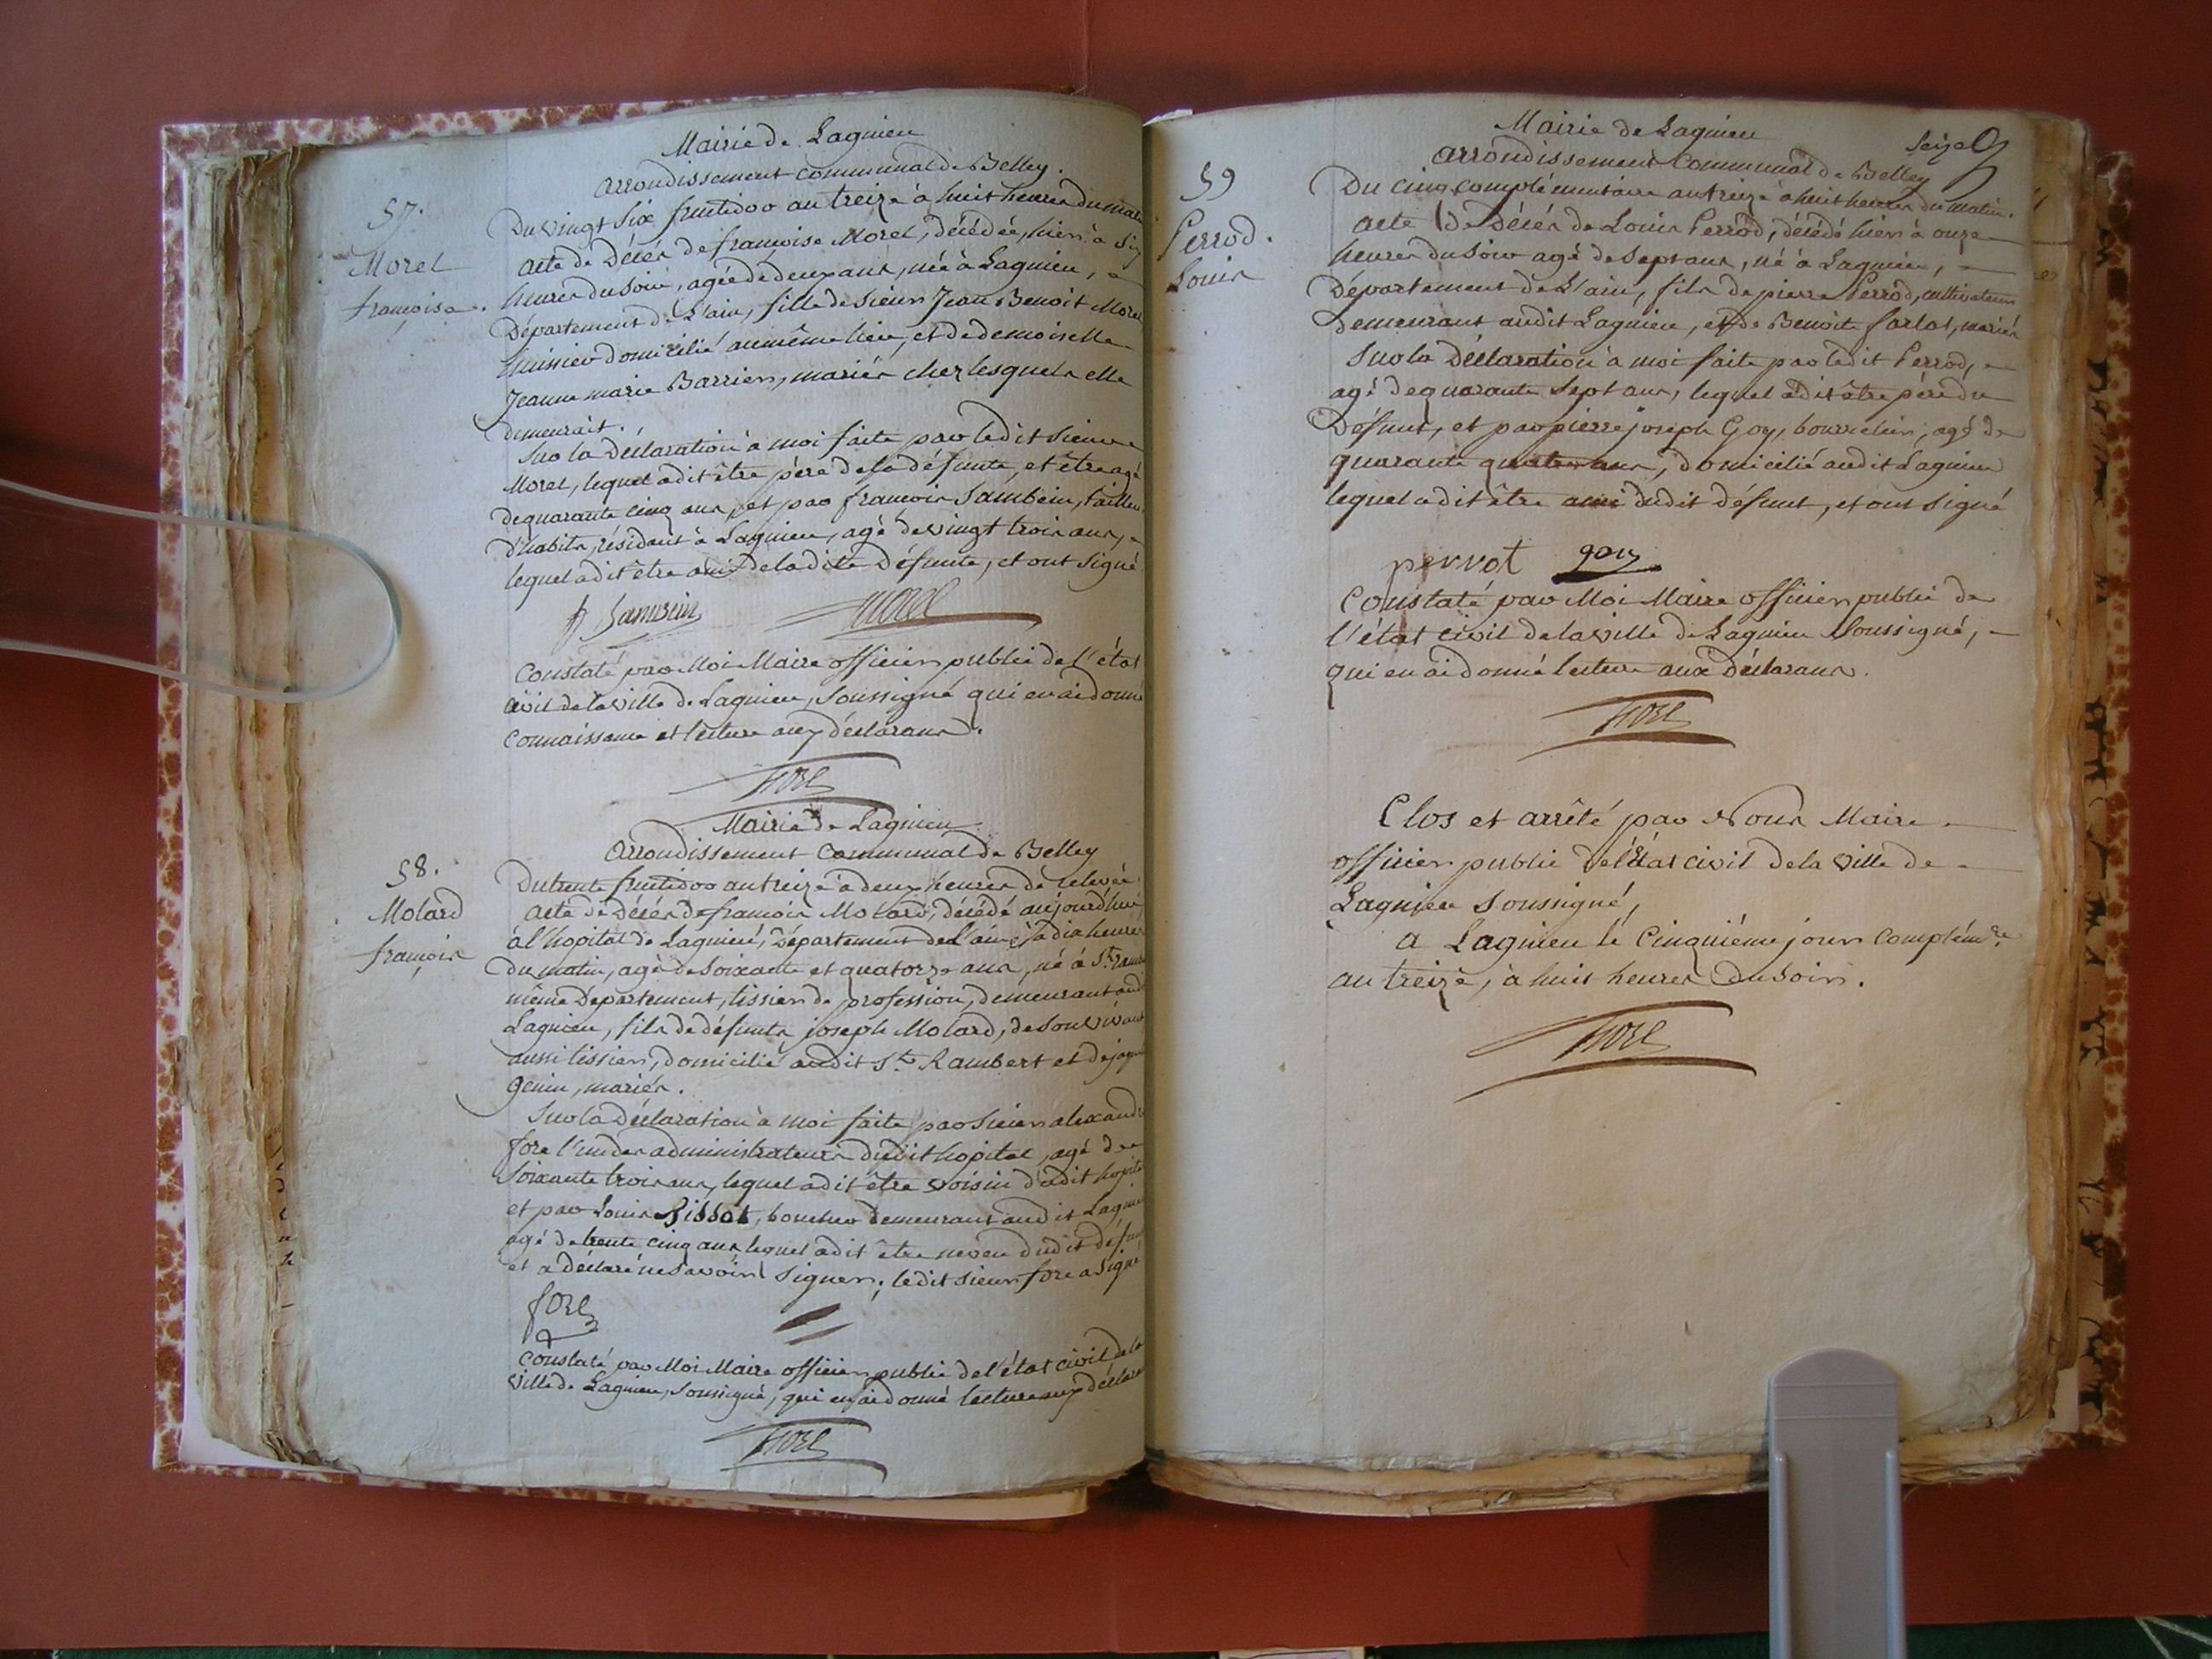 Mairie de Lagnieu
arrondissement communal de Belley.
57.
Morel
françoise.
Du vingt six fructidor an treize à huit heures du matin
acte de Décés de françoise Morel, décédée, hier à six
heures du soir, agée de deux ans, née à Lagnieu,
Département de l'ain, fille de sieur Jean Benoit Morel
huissier domicilié au même lieu, et de demoiselle
Jeanne marie Barrier, mariés chez lesquels elle
demeurait.
Sur la Déclaration à moi faite par ledit sieur
Morel, lequel a dit être père de la défunte, et être agé
de quarante cinq ans, et par françois Sambein, tailleur
d'habits, résidant à Lagnieu, agé de vingt trois ans,
lequel a dit être ami de ladite Défunte, et ont signé
f Sambein morel
Constaté par Moi Maire officier public de l'état
civil de la ville de Lagnieu, soussigné qui en ai donné
connaissance et lecture aux déclarans.
fore
Mairie de Lagnieu
arrondissement communal de Belley
58.
Molard
françois
Du trente fructidor an treize à deux heures de relevée
acte de Décés de françois Molard, décédé aujourd'hui,
à l'hopital de Lagnieu, Département de l'ain, à dix heures
du matin, agé de soixante et quatorze ans, né à St. Ramb
même Département, tissier de profession, demeurant aud
Lagnieu, fils de défunts joseph Molard, de son vivant
aussi tissier, domicilié audit St. Rambert et de jaqu
genin, mariés.
Sur la Déclaration à moi faite par Sieur alexandre
fore l'un des administrateurs dudit hopital, agé de
soixante trois ans, lequel a dit être voisin dudit hopital
et par Louis Bissot, boucher demeurant audit Lagnieu
agé de trente cinq ans lequel a dit être neveu dudit défun
et a déclaré ne savoir signer; ledit sieur fore a signé
fore
Constaté par Moi Maire officier public de l'état civil de la
ville de Lagnieu, soussigné, qui en ai donné lecture aux déclara
fore
Mairie de Lagnieu
seize
arrondissement Communal de Belley
59
Perrod.
Louis
Du cinq complémentaire an treize à huit heures du matin.
acte de Décés de Louis Perrod, décédé hier à onze
heures du soir agé de sept ans, né à Lagnieu,
Département de L'ain, fils de pierre Perrod, cultivateur
demeurant audit Lagnieu, et de Benoite farlot, mariés
Sur la Déclaration à moi faite par ledit Perrod,
agé de quarante sept ans, lequel a dit être père du
Défunt, et par pierre joseph Goy, bourrelier, agé de
quarante quatre ans, domicilié audit Lagnieu
lequel a dit être ami dudit défunt, et ont signé
perrot goy
Constaté par Moi Maire officier public de
l'état civil de la ville de Lagnieu soussigné,
qui en ai donné lecture aux déclarans.
fore
Clos et arrêté par Nous Maire
officier public de l'état civil de la ville de
Lagnieu soussigné,
a Lagnieu le Cinquième jour Complémre.
an treize, à huit heures du soir.
fore